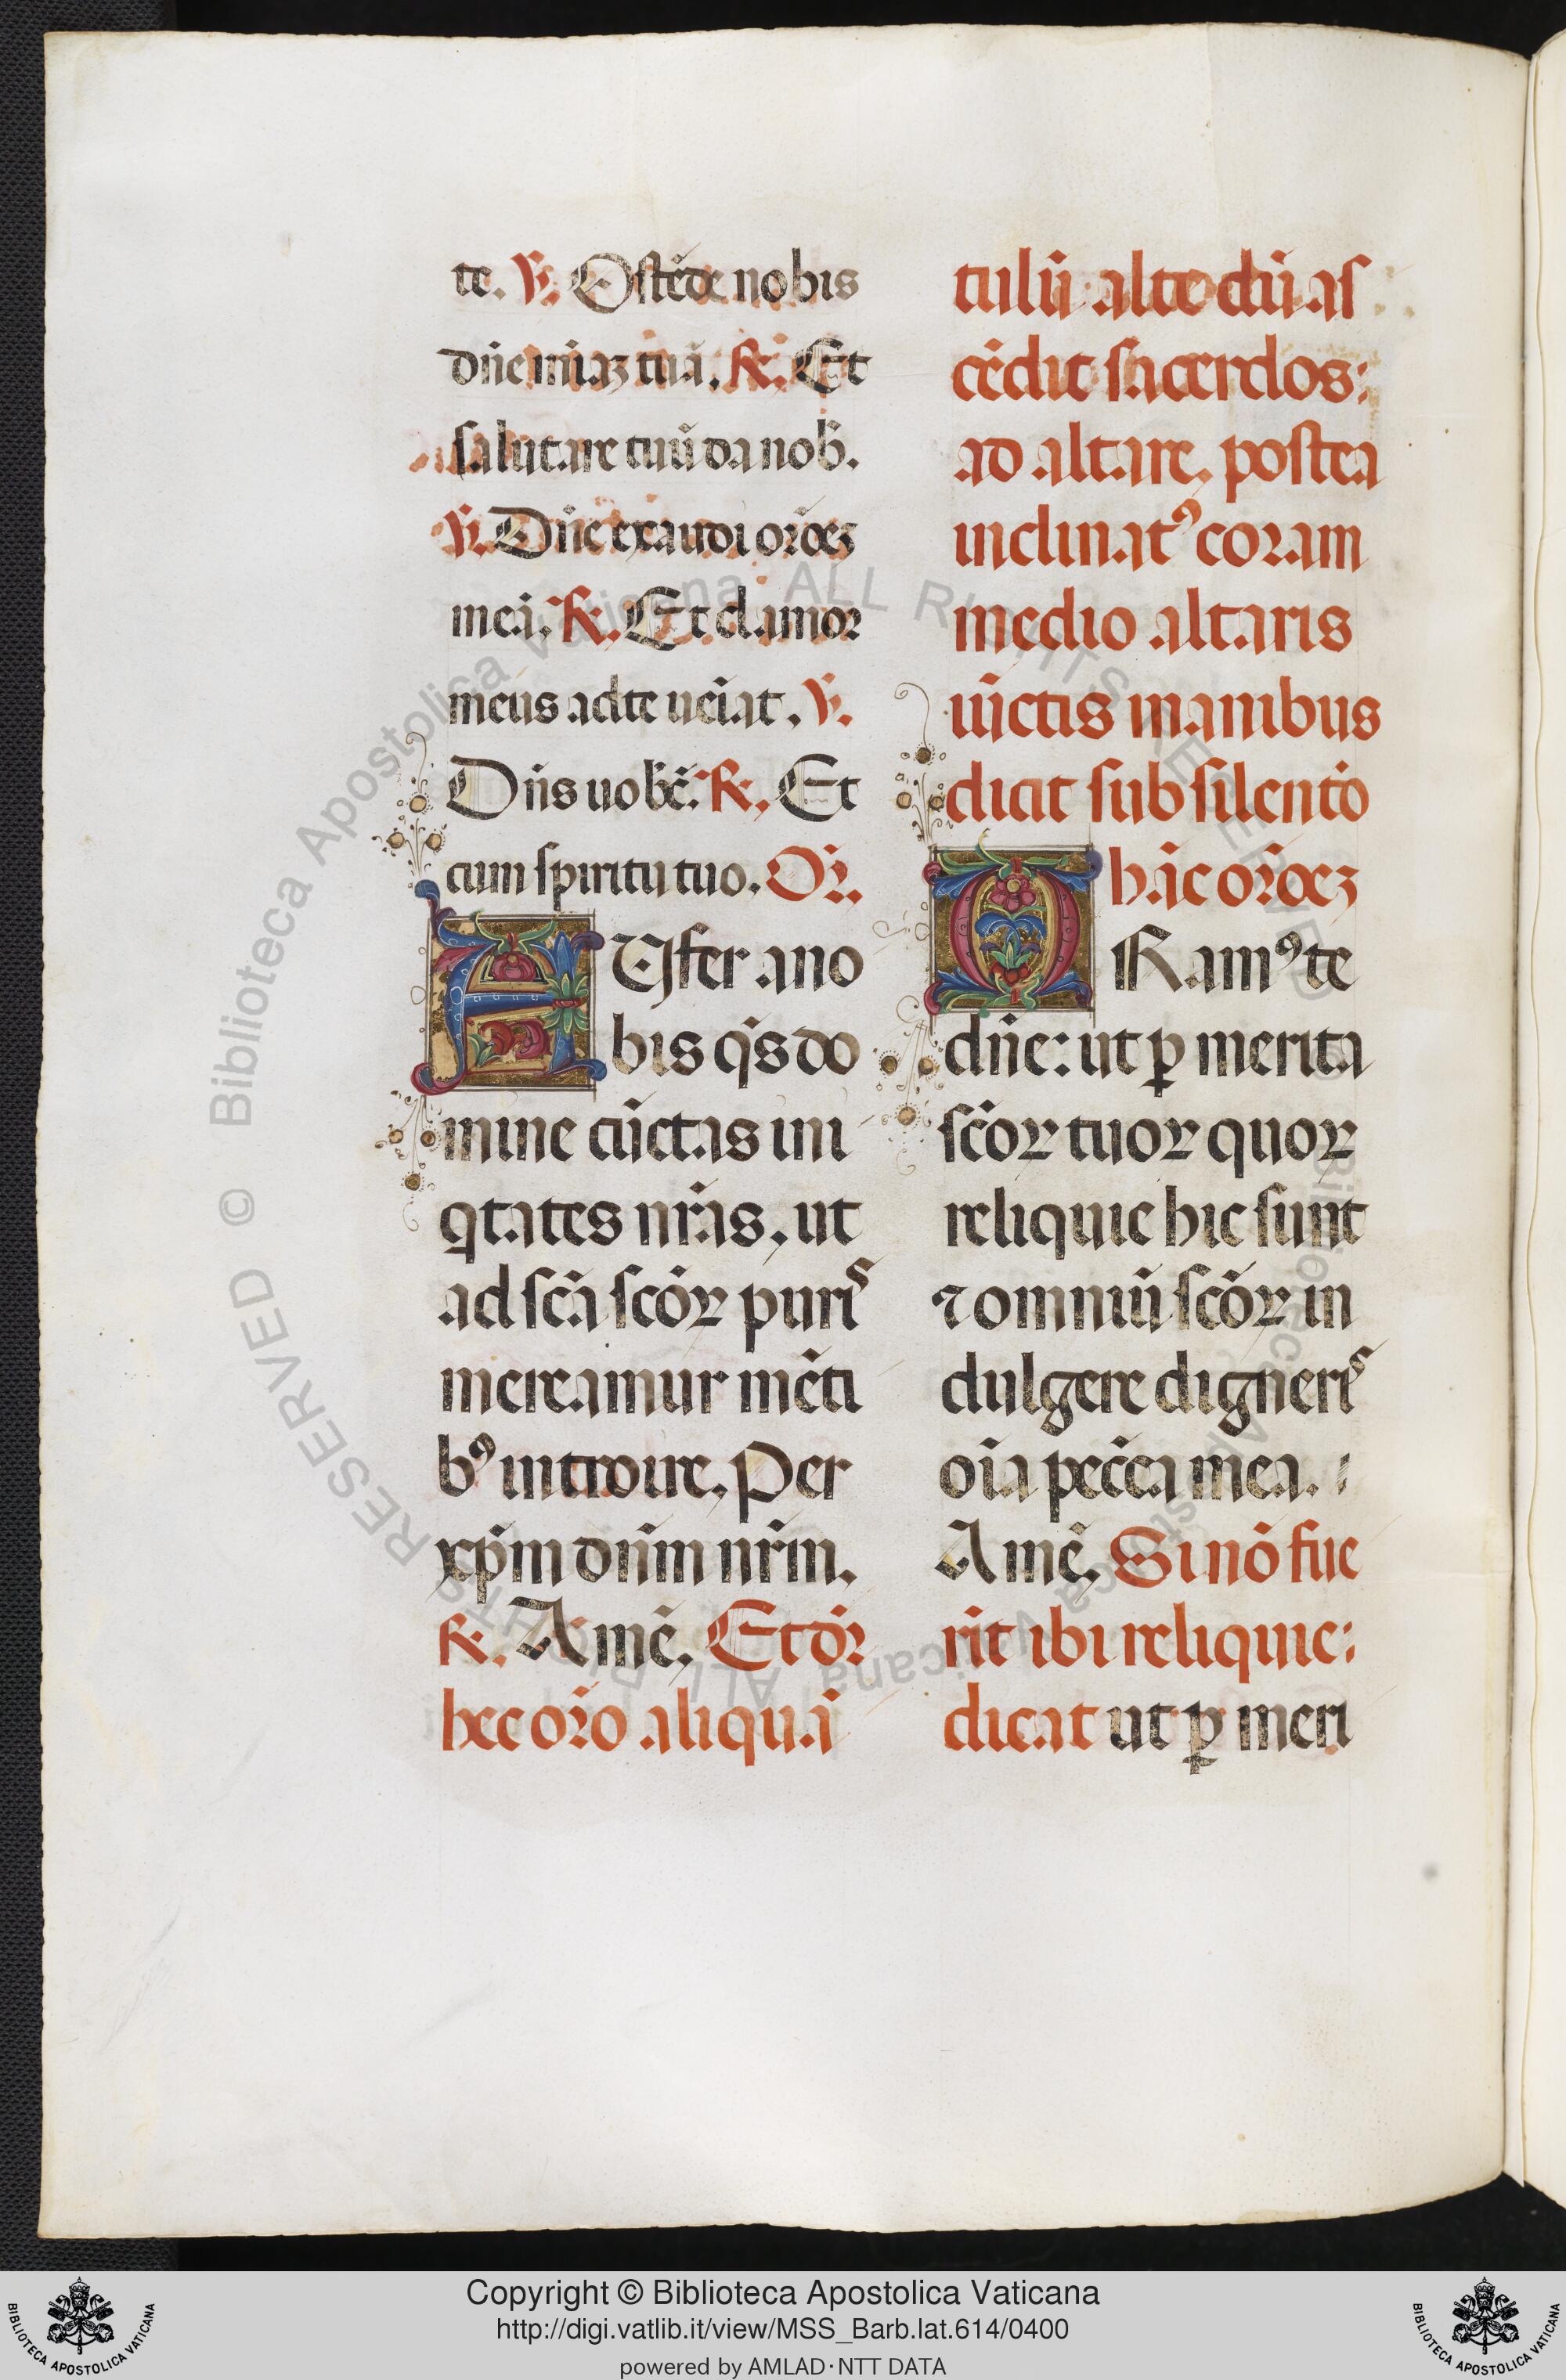 te. ℣. Ostēde nobis
dn̄e mīaꝫ tuā. ℟. Et
salutare tuū da nob̄.
℣. Dn̄e exaudi or̄oeꝫ
meā. ℟. Et clamor
meus ad te ueīat. ℣.
Dn̄s uob̄c̄. ℟. Et
cum spiritu tuo. Or̄.
AUfer a no
bis q̄s do
mine cūctas ini
qtates nr̄as, ut
ad sc̄a sc̄oꝝ purıͥs
mereamur mēti
bꝰ introire. Per
xp̄m dn̄m nr̄m.
℟. Amē. Et dr̄
hec or̄o aliquā
tulū alte dū as
cēdit sacerdos:
ad altare. postea
inclinatꝰ coram
medio altaris
iūctis manibus
dicit sub silentō
hāc or̄oeꝫ
ORamꝰ te
dn̄e: ut ꝑ merita
sc̄oꝝ tuoꝝ quoꝝ
reliquie hic sunt
⁊ omniū sc̄oꝝ in
dulgere digneris
oīa pec̄ca mea.
Amē. Si nō fue
rīt ibi reliquie:
dicat ut ꝑ meri
© Biblioteca Apostolica Vaticana ALL RIGHTS RESERVED
Copyright © Biblioteca Apostolica Vaticana
http://digi.vatlib.it/view/MSS_Barb.lat.614/0400
powered by AMLAD·NTT DATA
BIBLIOTECA APOSTOLICA VATICANA
BIBLIOTECA APOSTOLICA VATICANA